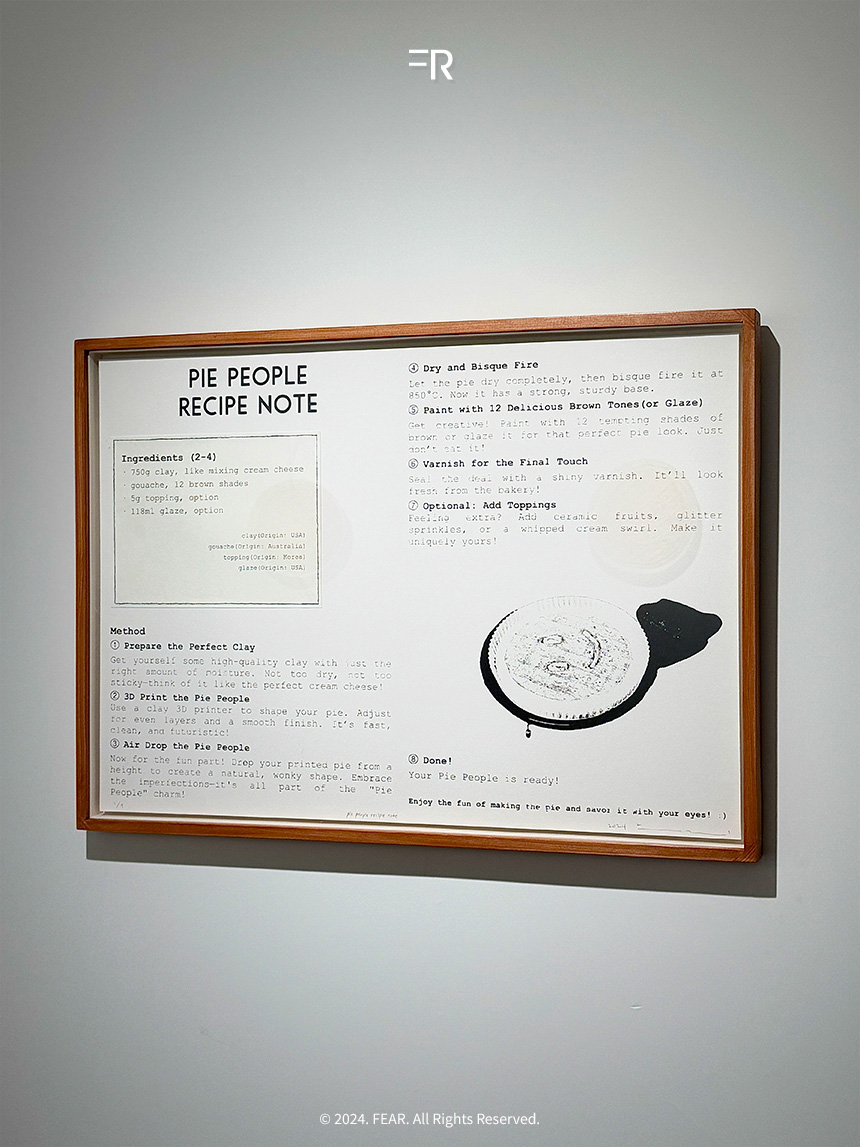 FR
PIE PEOPLE
RECIPE NOTE
Ingredients (2-4)
· 750g clay, like mixing cream cheese
· gouache, 12 brown shades
· 5g topping, option
· 118ml glaze, option
clay(Origin: USA)
gouache(Origin: Australia)
topping(Origin: Korea)
glaze(Origin: USA)
Method
① Prepare the Perfect Clay
Get yourself some high-quality clay with just the
right amount of moisture. Not too dry, not too
sticky—think of it like the perfect cream cheese!
② 3D Print the Pie People
Use a clay 3D printer to shape your pie. Adjust
for even layers and a smooth finish. It's fast,
clean, and futuristic!
③ Air Drop the Pie People
Now for the fun part! Drop your printed pie from a
height to create a natural, wonky shape. Embrace
the imperfections—it's all part of the "Pie
People" charm!
④ Dry and Bisque Fire
Let the pie dry completely, then bisque fire it at
850°C. Now it has a strong, sturdy base.
⑤ Paint with 12 Delicious Brown Tones(or Glaze)
Get creative! Paint with 12 tempting shades of
brown or glaze it for that perfect pie look. Just
don't eat it!
⑥ Varnish for the Final Touch
Seal the deal with a shiny varnish. It'll look
fresh from the bakery!
⑦ Optional: Add Toppings
Feeling extra? Add ceramic fruits, glitter
sprinkles, or a whipped cream swirl. Make it
uniquely yours!
⑧ Done!
Your Pie People is ready!
Enjoy the fun of making the pie and savor it with your eyes! :)
pie people recipe note
2024
© 2024. FEAR. All Rights Reserved.